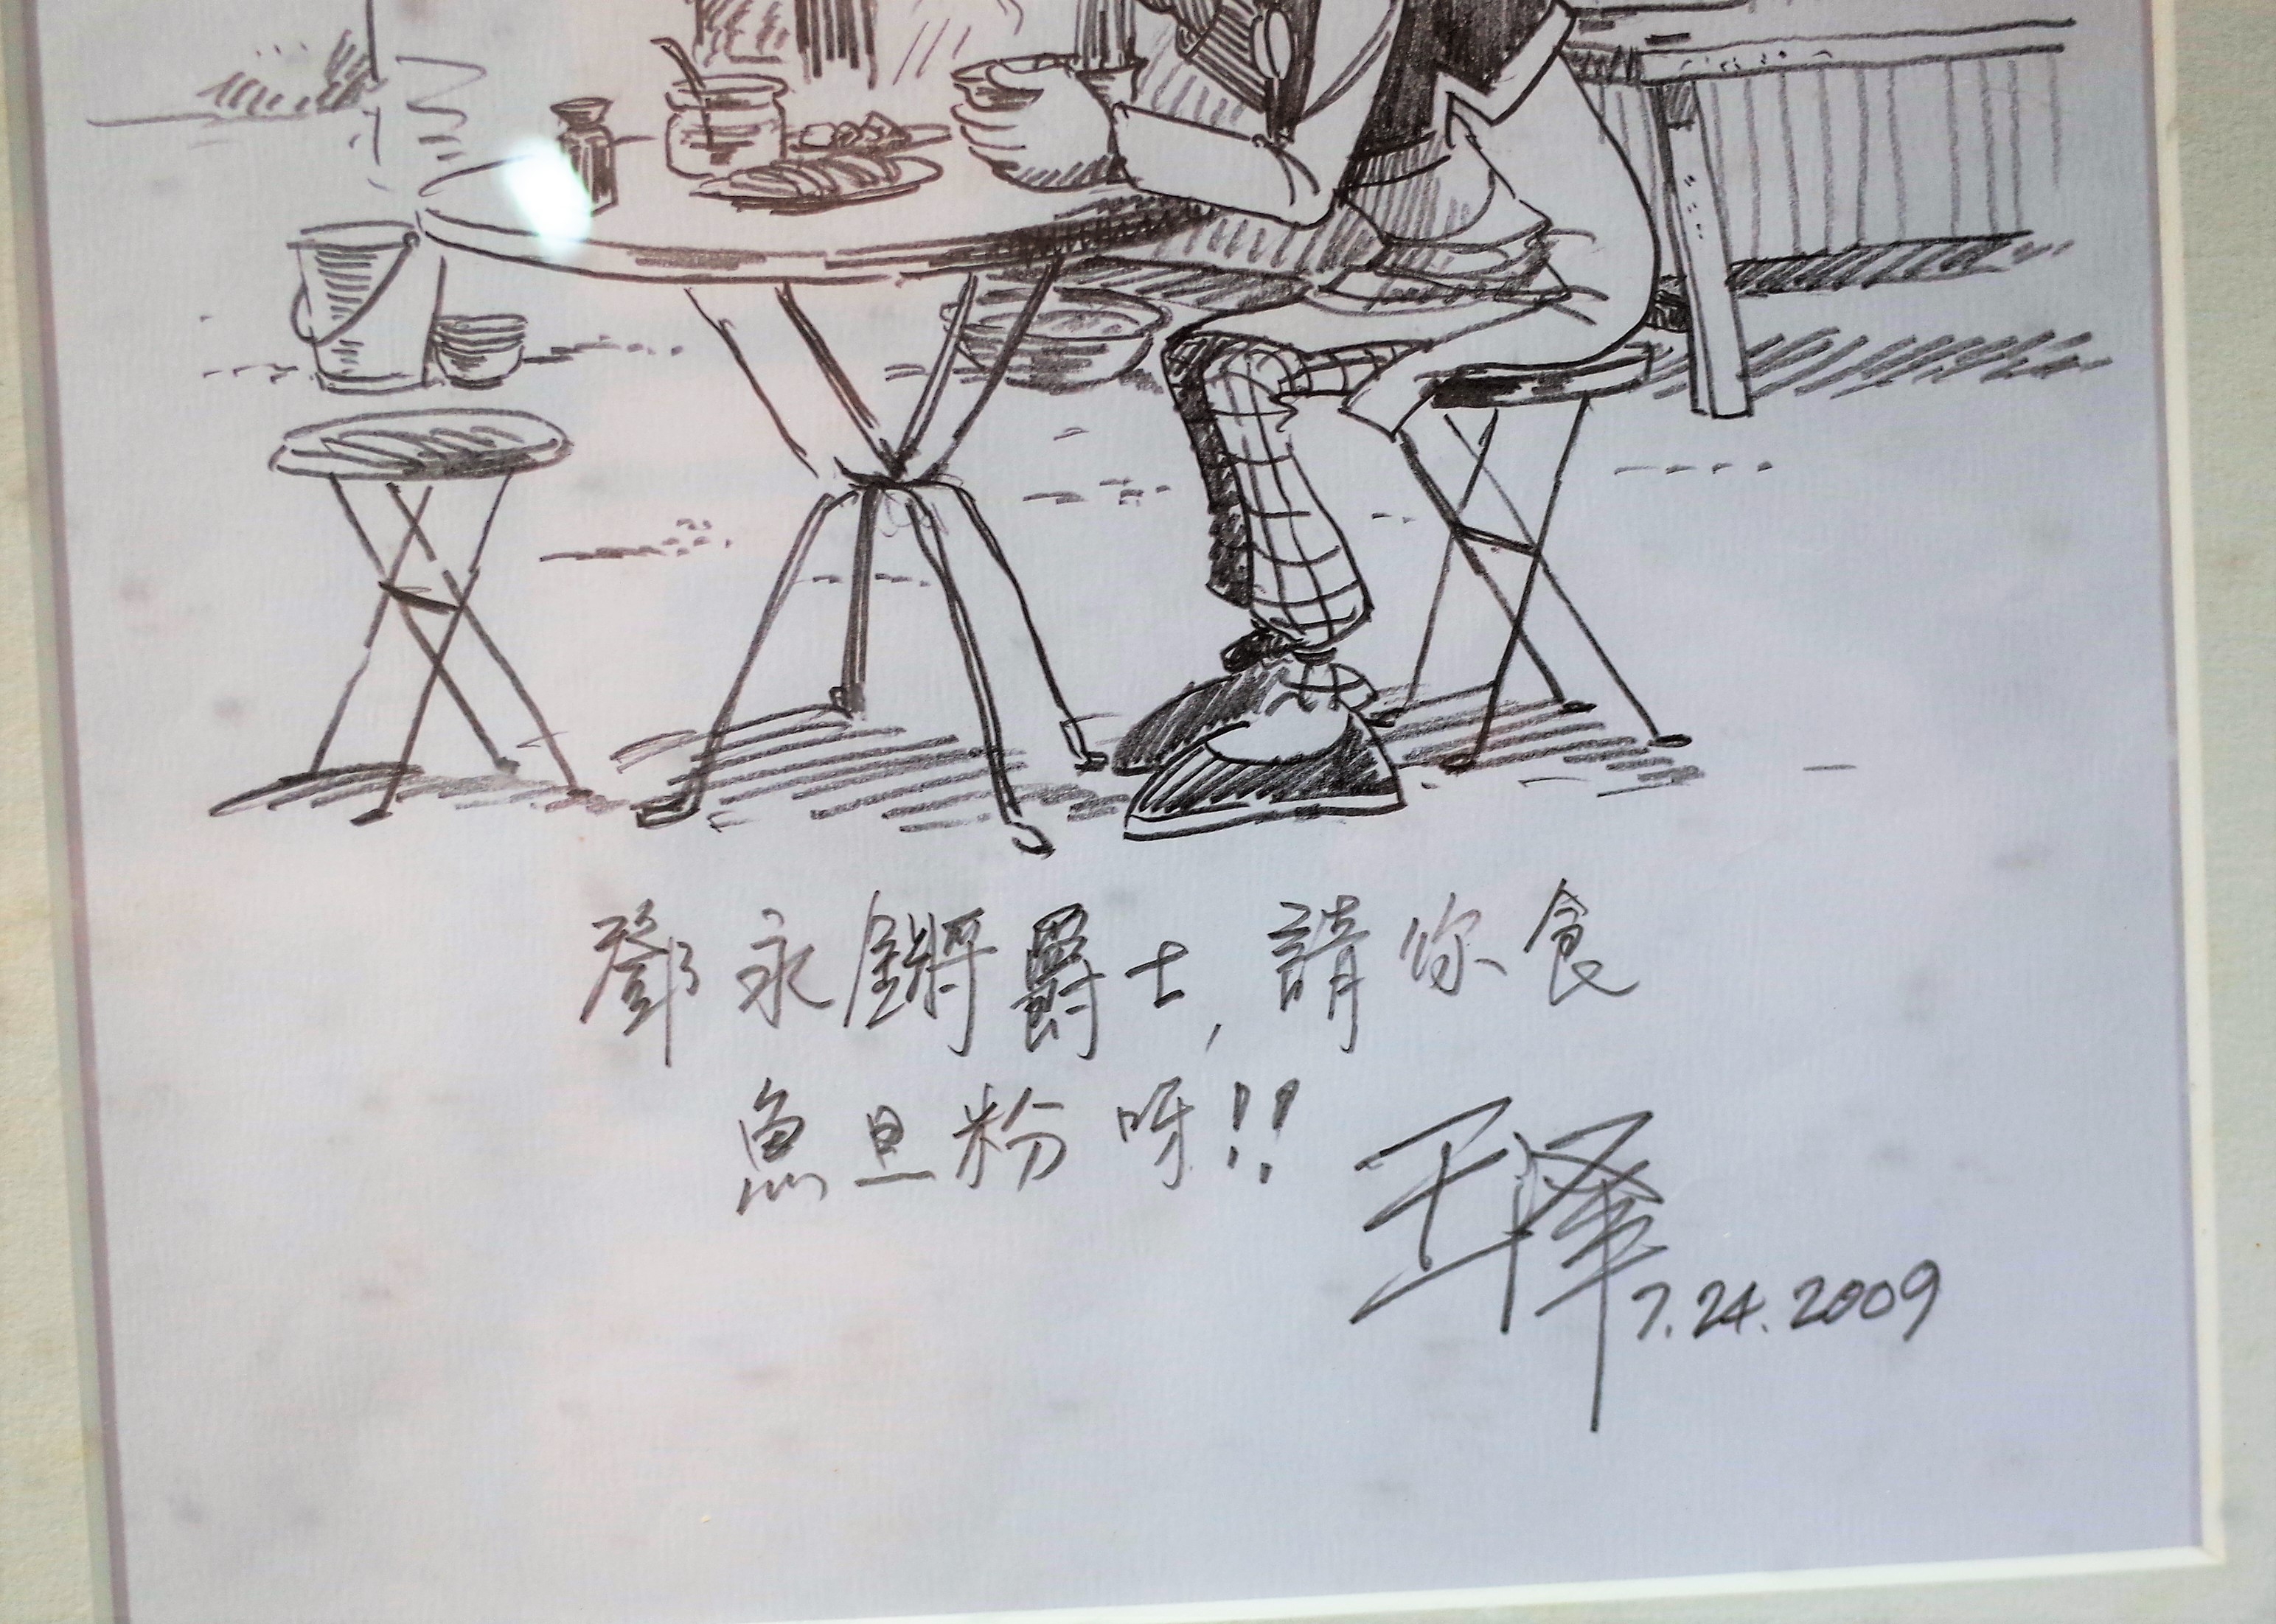 鄧永鏘爵士, 請你食
魚旦粉呀!!
王澤
7.24.2009